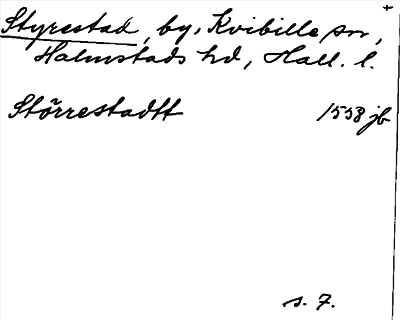 Styrestad, by, Kvibille sn,
Halmstads hd, Hall. l.
Störrestadtt 1558 jb
s. 7.